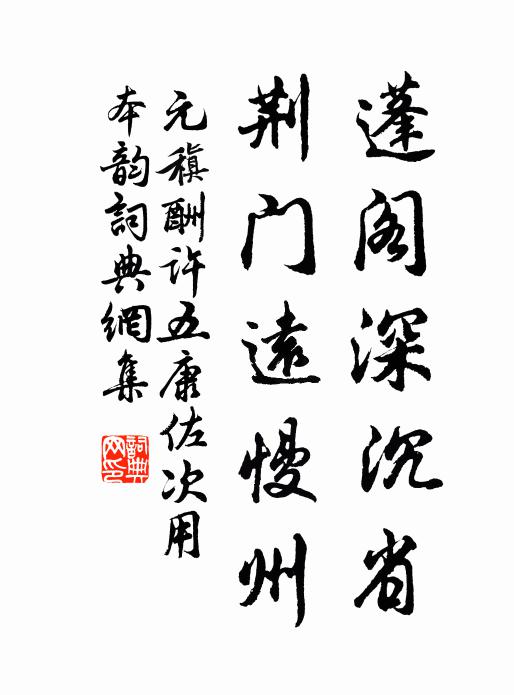 蓬阁深沉省
荆门远慢州
元稹酬许五康佐次用
本韵词典网集
词典网印